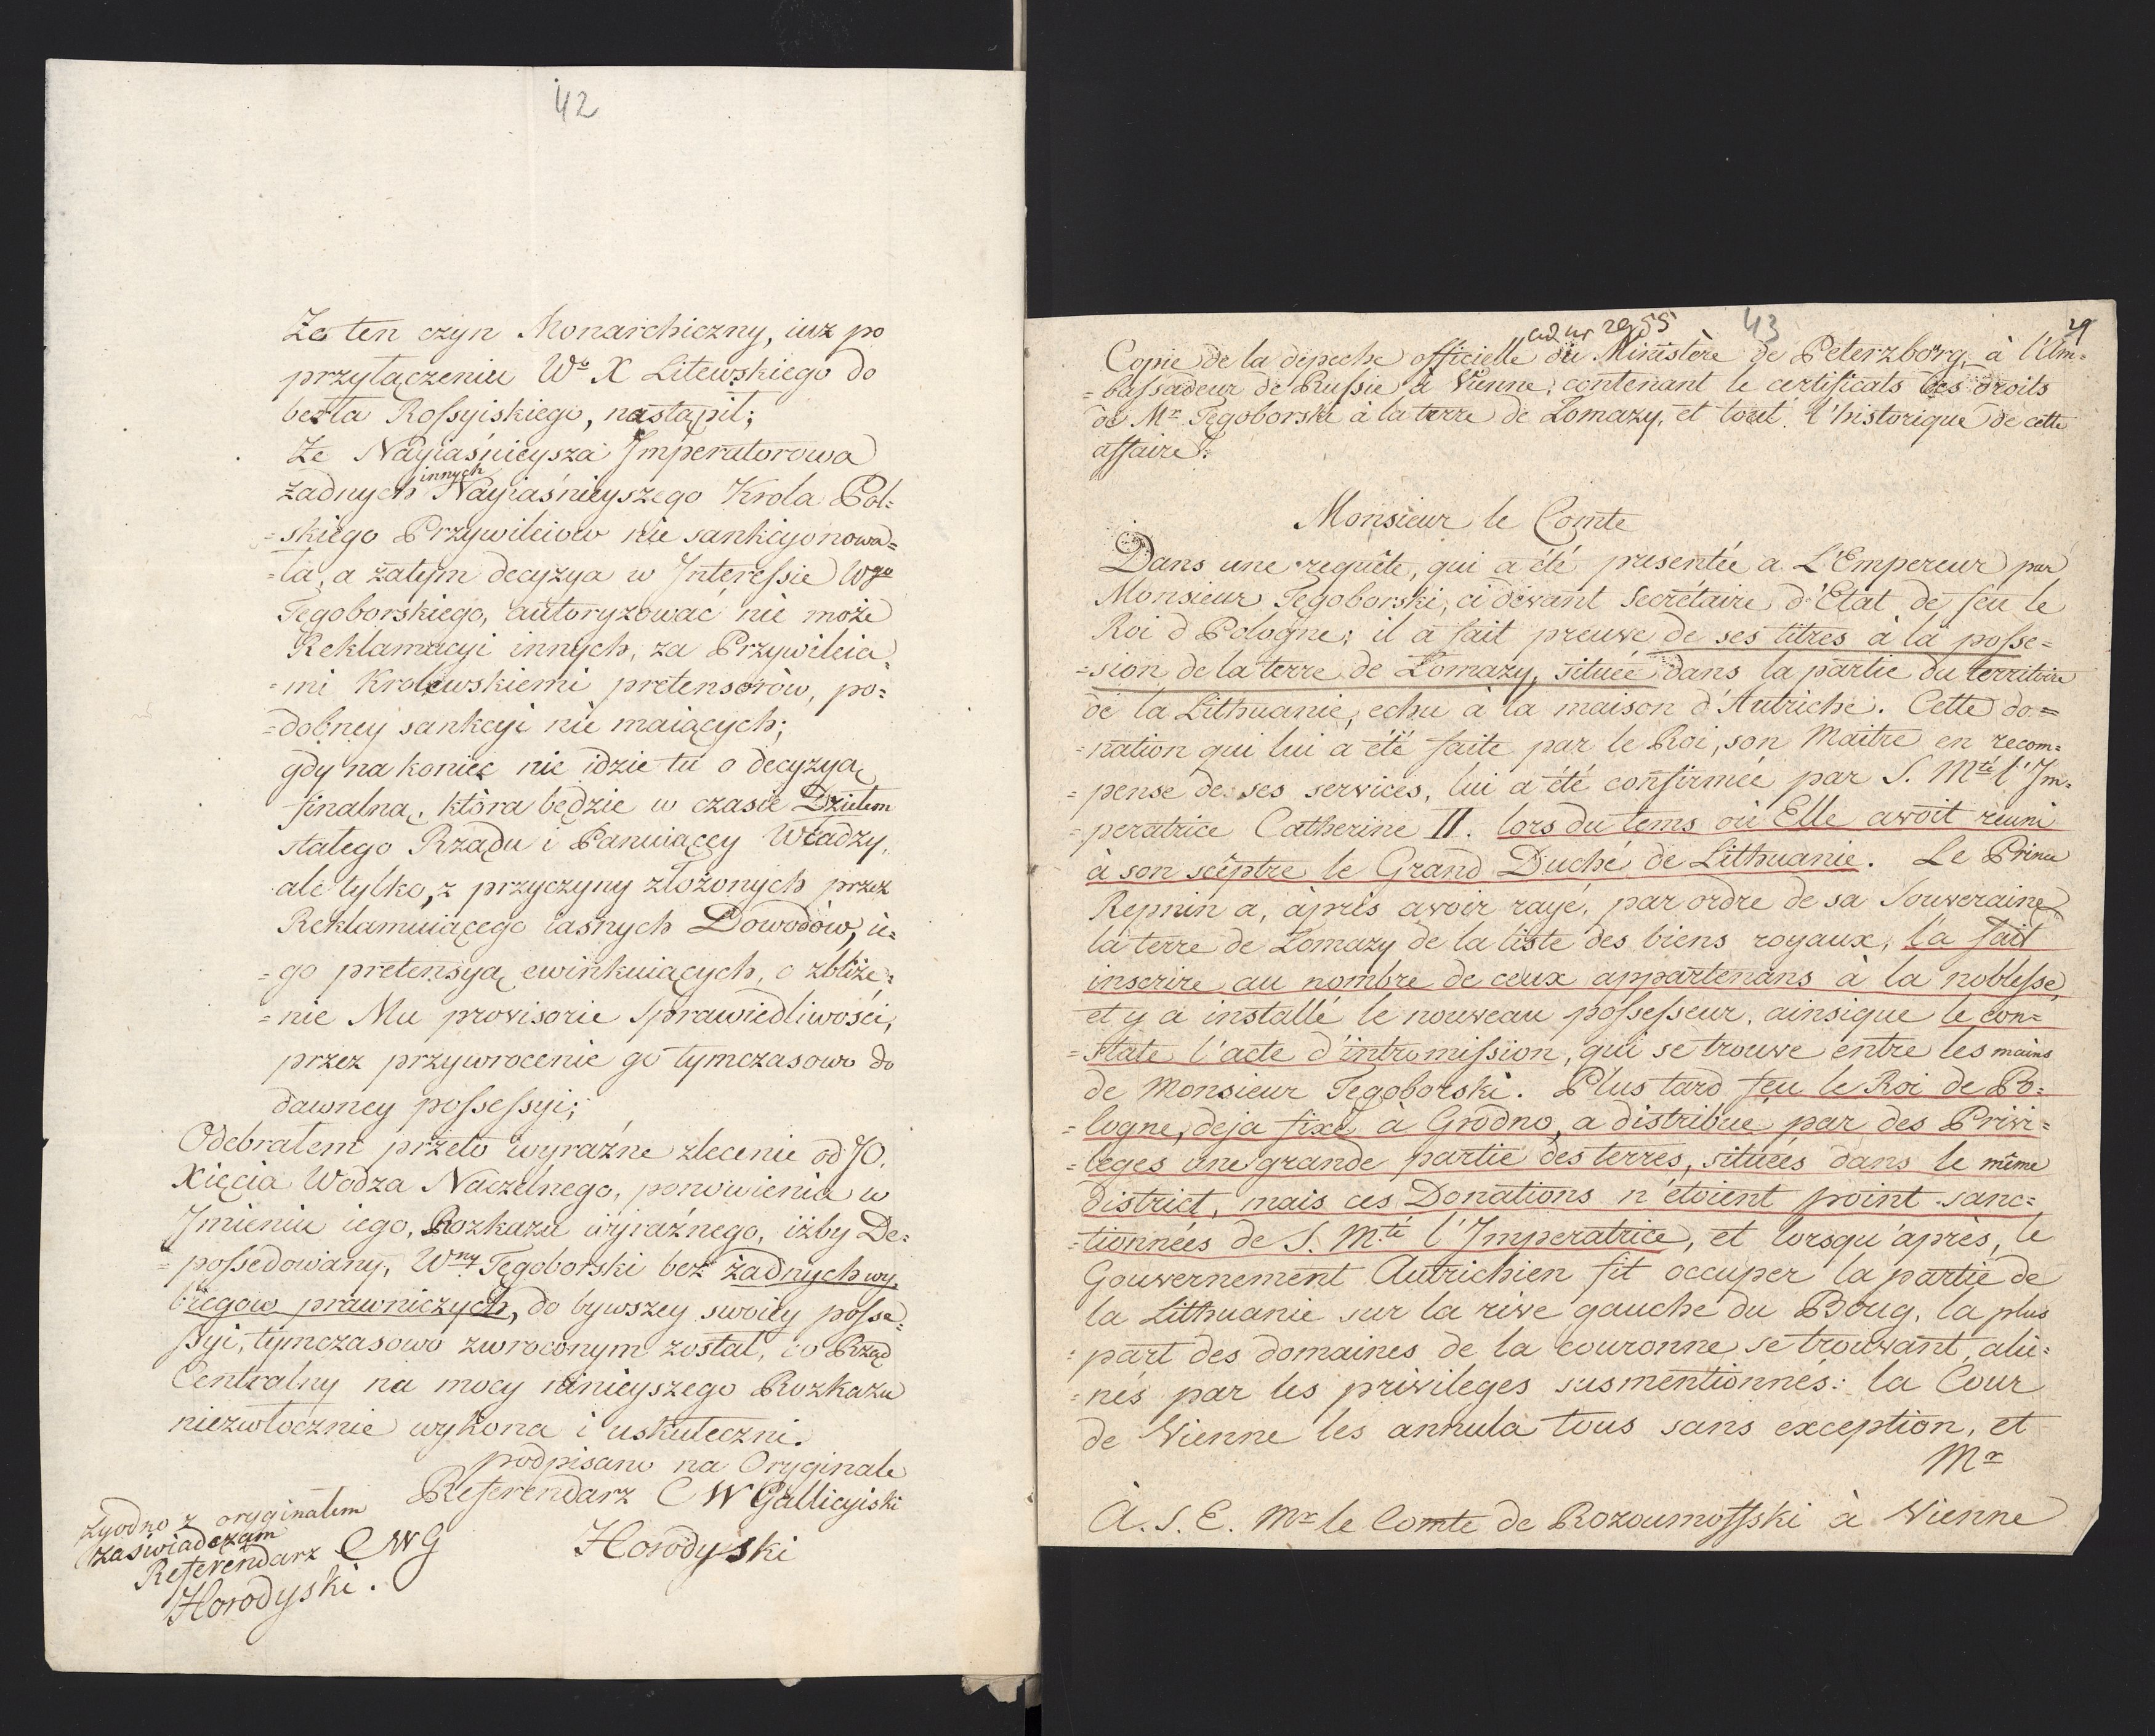 42
Że ten czyn Monarchiczny, iuż po
przyłączeniu Wo X Litewskiego do
berła Rossyiskiego, nastąpił;
Że Nayiaśnieysza Jmperatorowa
żadnych innych Nayiaśnieyszego Krola Pol=
=skiego Przywileiow nie sankcyonowa=
=ła, a zatym decyzya w Jnteressie Wgo
Tęgoborskiego, autoryzować nie może
Reklamacyi innych, za Przywileia=
=mi Krolewskiemi pretensorów, po=
=dobney sankcyi nie maiących;
gdy na koniec nie idzie tu o decyzyą
finalną, która będzie w czasie Dziełem
stałego Rządu i Panuiącey Władzy,
ale tylko, z przyczyny złożonych przez
Reklamuiącego iasnych Dowodów, ie=
=go pretensyą ewinkuiących, o zbliże=
=nie Mu provisorie sprawiedliwości,
przez przywrocenie go tymczasowo do
dawney possessyi;
Odebrałem przeto wyraźne zlecenie od JO.
Xięcia Wodza Naczelnego, ponowienia w
Jmieniu iego, Rozkazu wyraźnego, iżby De=
=possedowany, Wny Tęgoborski bez żadnych wy
biegow prawniczych, do bywszey swoiey posse=
ssyi, tymczasowo zwroconym został, co Rząd
Centralny na mocy ninieyszego Rozkazu
niezwłocznie wykona i uskuteczni.
podpisano na Oryginale
Referendarz C W Gallicyiski
Horodyski
Zgodno z oryginałem
zaświadczam
Referendarz C W G
Horodyski.
43
29
ad nr 2955
Copie de la dépeche officielle du Ministère de Peterzborg, à l'Am=
=bassadeur de Russie à Vienne, contenant le certificats des droits
de Mr Tęgoborski à la terre de Lomazy, et tout l'historique de cette
affaire.
Monsieur le Comte
Dans une requête, qui a été presentée a L'Empereur par
Monsieur Tęgoborski, ci devant Secrétaire d'Etat de feu le
Roi d Pologne; il a fait preuve de ses titres à la posse=
=sion de la terre de Lomazy, située dans la partie du territoire
de la Lithuanie, echu à la maison d'Autriche. Cette do=
=nation qui lui a été faite par le Roi, son Maitre en recom=
=pense de ses services, lui a été confirmée par S. Mté l'Jm=
=peratrice Catherine II. lors du tems où Elle avoit réuni
à son sceptre le Grand Duché de Lithuanie. Le Prince
Repnin a, àprés avoir rayé, par ordre de sa Souveraine
la terre de Lomazy de la liste des biens royaux, l'a fait
inscrire au nombre de ceux appartenans à la noblesse,
et y a installé le nouveau possesseur, ainsique le con=
=state l'acte d'intromission, qui se trouve entre les mains
de Monsieur Tegoborski. Plus tard feu le Roi de Po=
=logne, deja fixé à Grodno, a distribué par des Privi=
=leges une grande partie des terres, situées dans le même
district, mais ces Donations n'etoient point sanc=
=tionnées de S. Mté l'Jmperatrice, et lorsqu'après, le
Gouvernement Autrichien fit occuper la partie de
la Lithuanie sur la rive gauche du Boug, la plus
=part des domaines de la couronne se trouvant alié=
=nés par les privileges susmentionnés: la Cour
de Vienne les annula tous sans exception, et
Mr
À. S. E. Mr le Comte de Rozoumoffski à Vienne